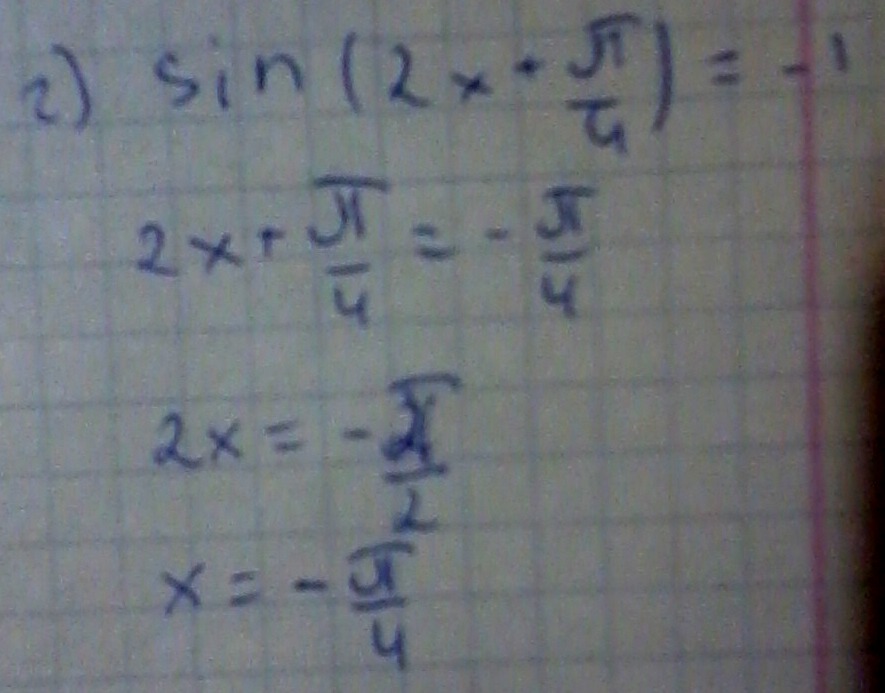 г) sin(2x + π/4) = -1
2x + π/4 = -π/4
2x = -π/2
x = -π/4